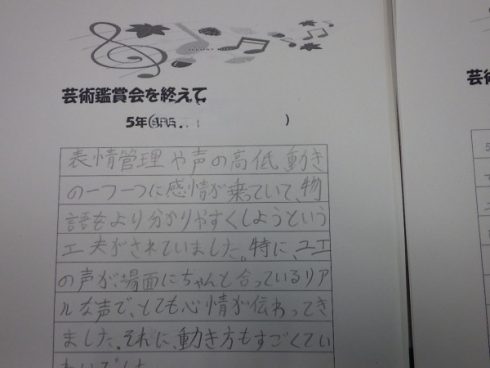 芸術鑑賞会を終えて
5年( )
表情管理や声の高低、動き
の一つ一つに感情が乗っていて、物
語をより分かりやすくしようという
工夫がされていました。特に、ユエ
の声が場面にちゃんと合っているリア
ルな声で、とても心情が伝わってき
ました。それに動き方もすごくてい
芸術